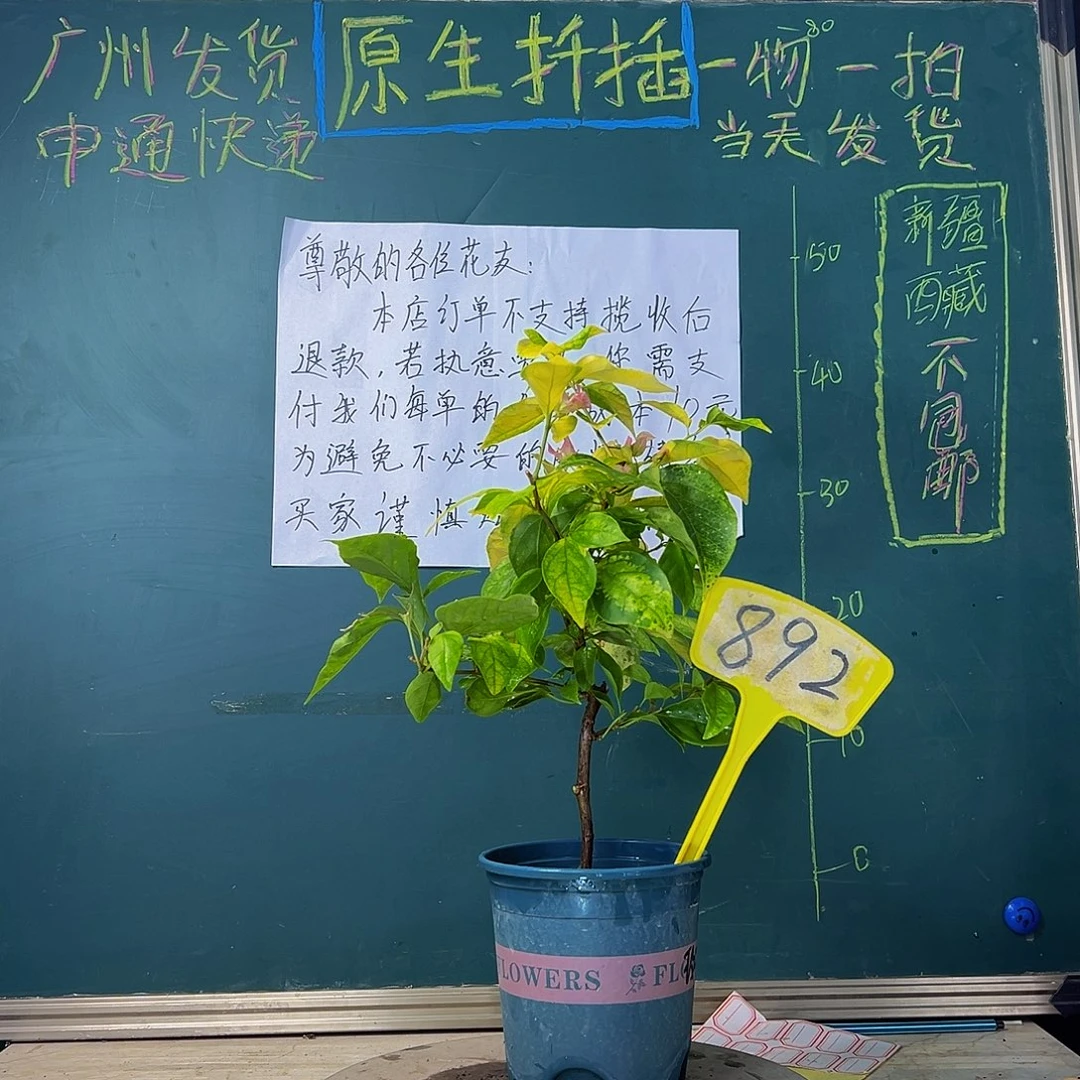 广州发货
申通快递
原生扦插
一物一拍
当天发货
80
新疆
西藏
不
包
邮
尊敬的各位花友:
本店订单不支持揽收后
退款,若执意 你需支
付我们每单的 本10元
为避免不必要的
买家谨慎
50
40
30
20
10
0
892
FLOWERS FLO